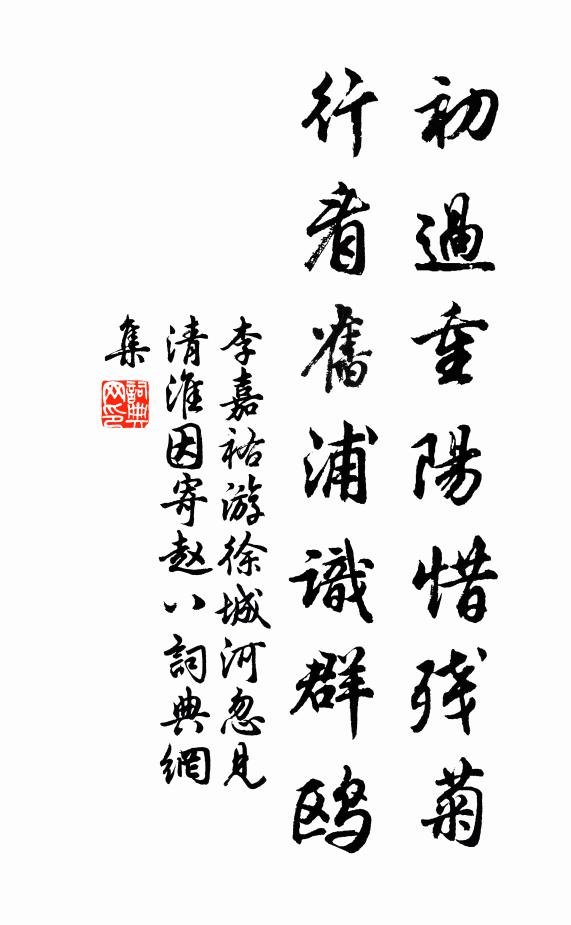 初過重陽惜残菊
行看舊浦識群鸥
李嘉祐游徐城河忽见
清淮因寄赵八詞典網
集
詞典网印